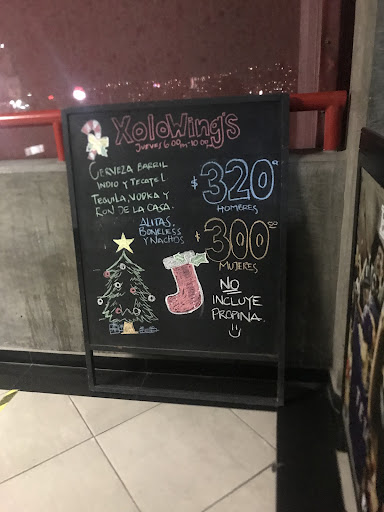 XoloWing's
JUEVES 6:00pm-10:00
CERVEZA BARRIL
INDIO Y TECATE
TEQUILA, VODKA Y
RON DE LA CASA.
ALITAS,
BONELESS
Y NACHOS
$320
HOMBRES
$300.00
MUJERES
NO
INCLUYE
PROPINA.